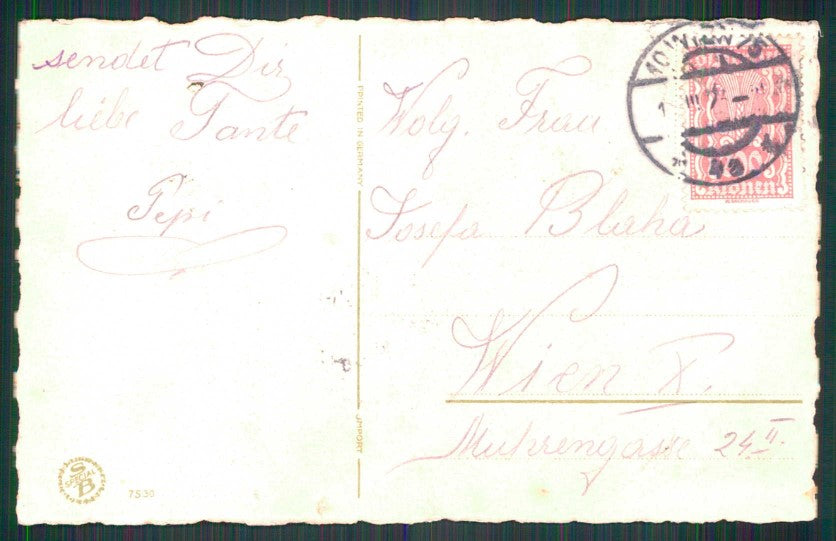 sendet Dir
liebe Tante
Pepi
PRINTED IN GERMANY
IMPORT
SB
SPECIAL
7530
Wolg. Frau
Josefa Blaha
Wien X.
Muhrengasse 24 II
10 WIEN 75
Kronen